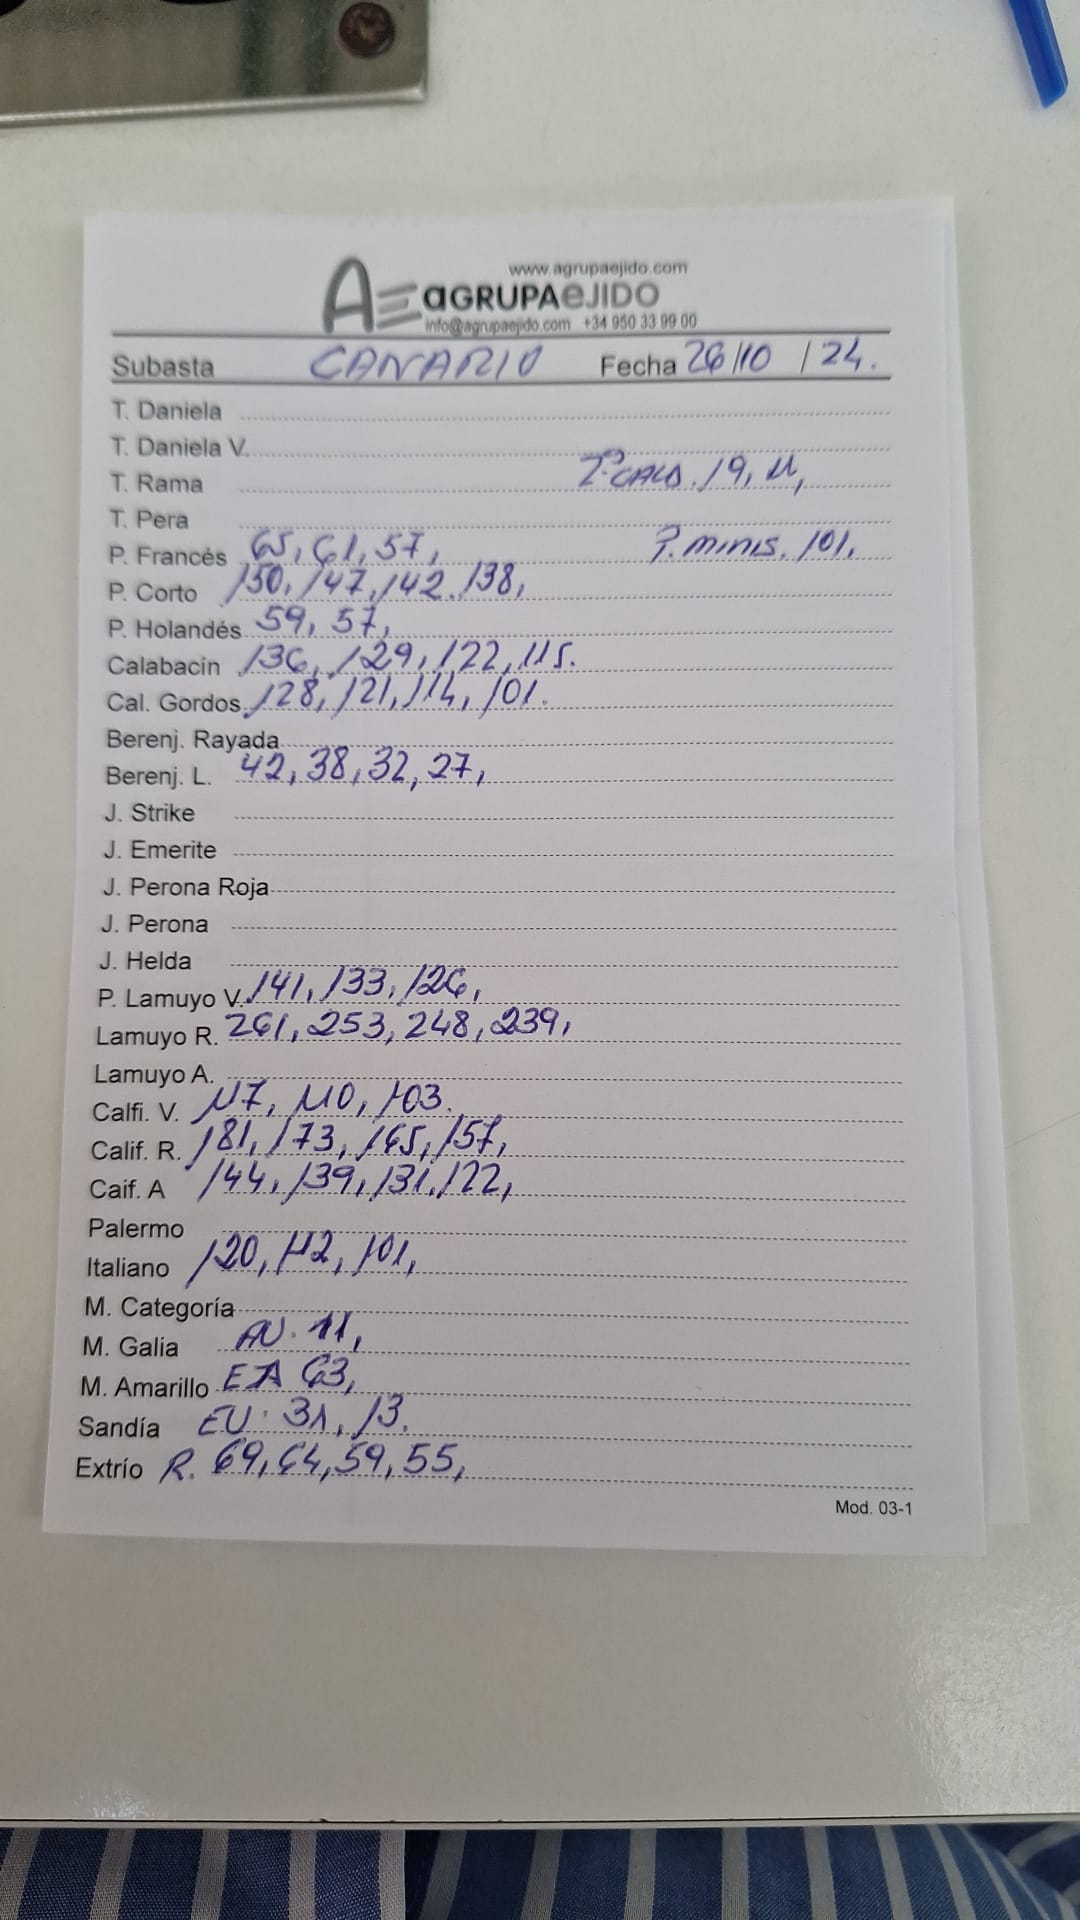 www.agrupaejido.com
AE aGRUPAeJIDO
info@agrupaejido.com +34 950 33 99 00
Subasta CANARIO Fecha 26/10 /24.
T. Daniela
T. Daniela V.
T. Rama 2ª CALA. 19, 11,
T. Pera
P. Francés 65, 61, 57, P. MINIS. 101,
P. Corto 150, 147, 142. 138,
P. Holandés 59, 57,
Calabacín 136, 129, 122, 115.
Cal. Gordos 128, 121, 114, 101.
Berenj. Rayada
Berenj. L. 42, 38, 32, 27,
J. Strike
J. Emerite
J. Perona Roja
J. Perona
J. Helda
P. Lamuyo V. 141, 133, 126,
Lamuyo R. 261, 253, 248, 239,
Lamuyo A.
Calfi. V. 117, 110, 103.
Calif. R. 181, 173, 165, 157,
Caif. A 144, 139, 131, 122,
Palermo
Italiano 120, 112, 101,
M. Categoría
M. Galia AU. 11,
M. Amarillo EJA 63,
Sandía EU. 31, 13.
Extrío R. 69, 64, 59, 55,
Mod. 03-1